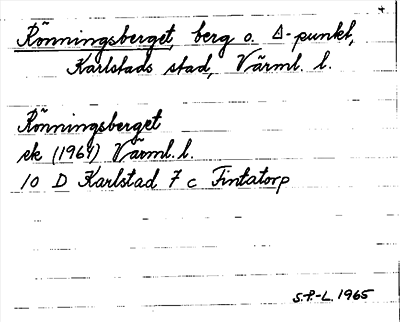 Rönningsberget, berg o. Δ-punkt,
Karlstads stad, Värml. l.
Rönningsberget
ek (1961) Värml. l.
10 D Karlstad 7 c Fintatorp
S.P.-L. 1965